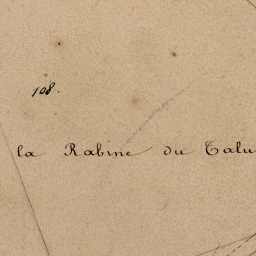 108.
la Rabine du Talu